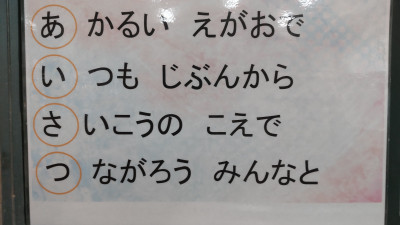 あかるい えがおで
いつも じぶんから
さいこうの こえで
つながろう みんなと